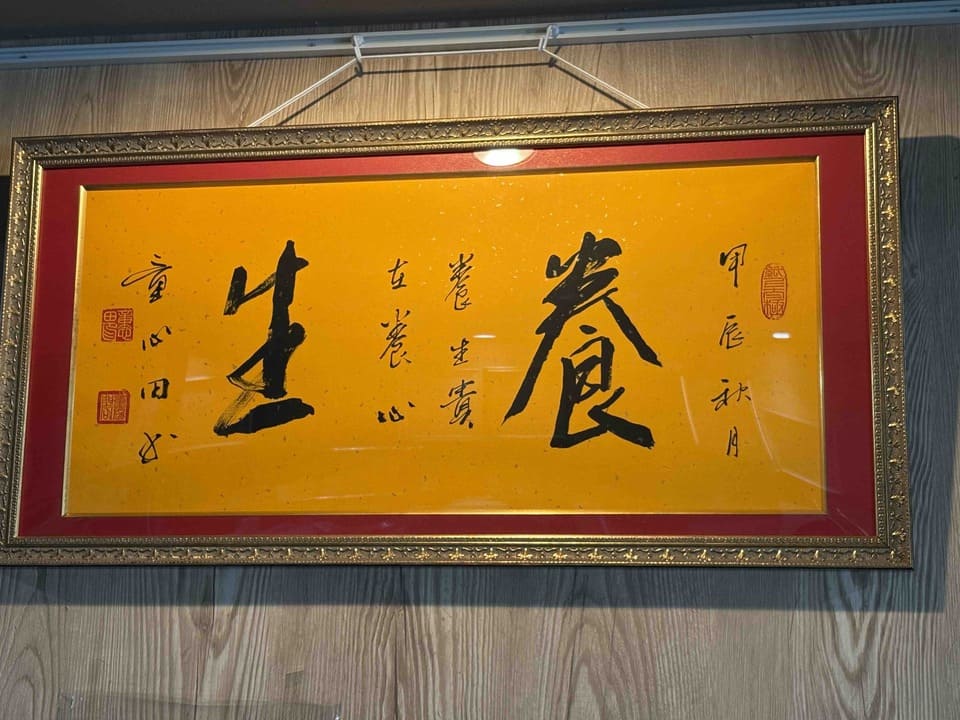 甲辰秋月
養
養生貴
在養心
生
童心田书